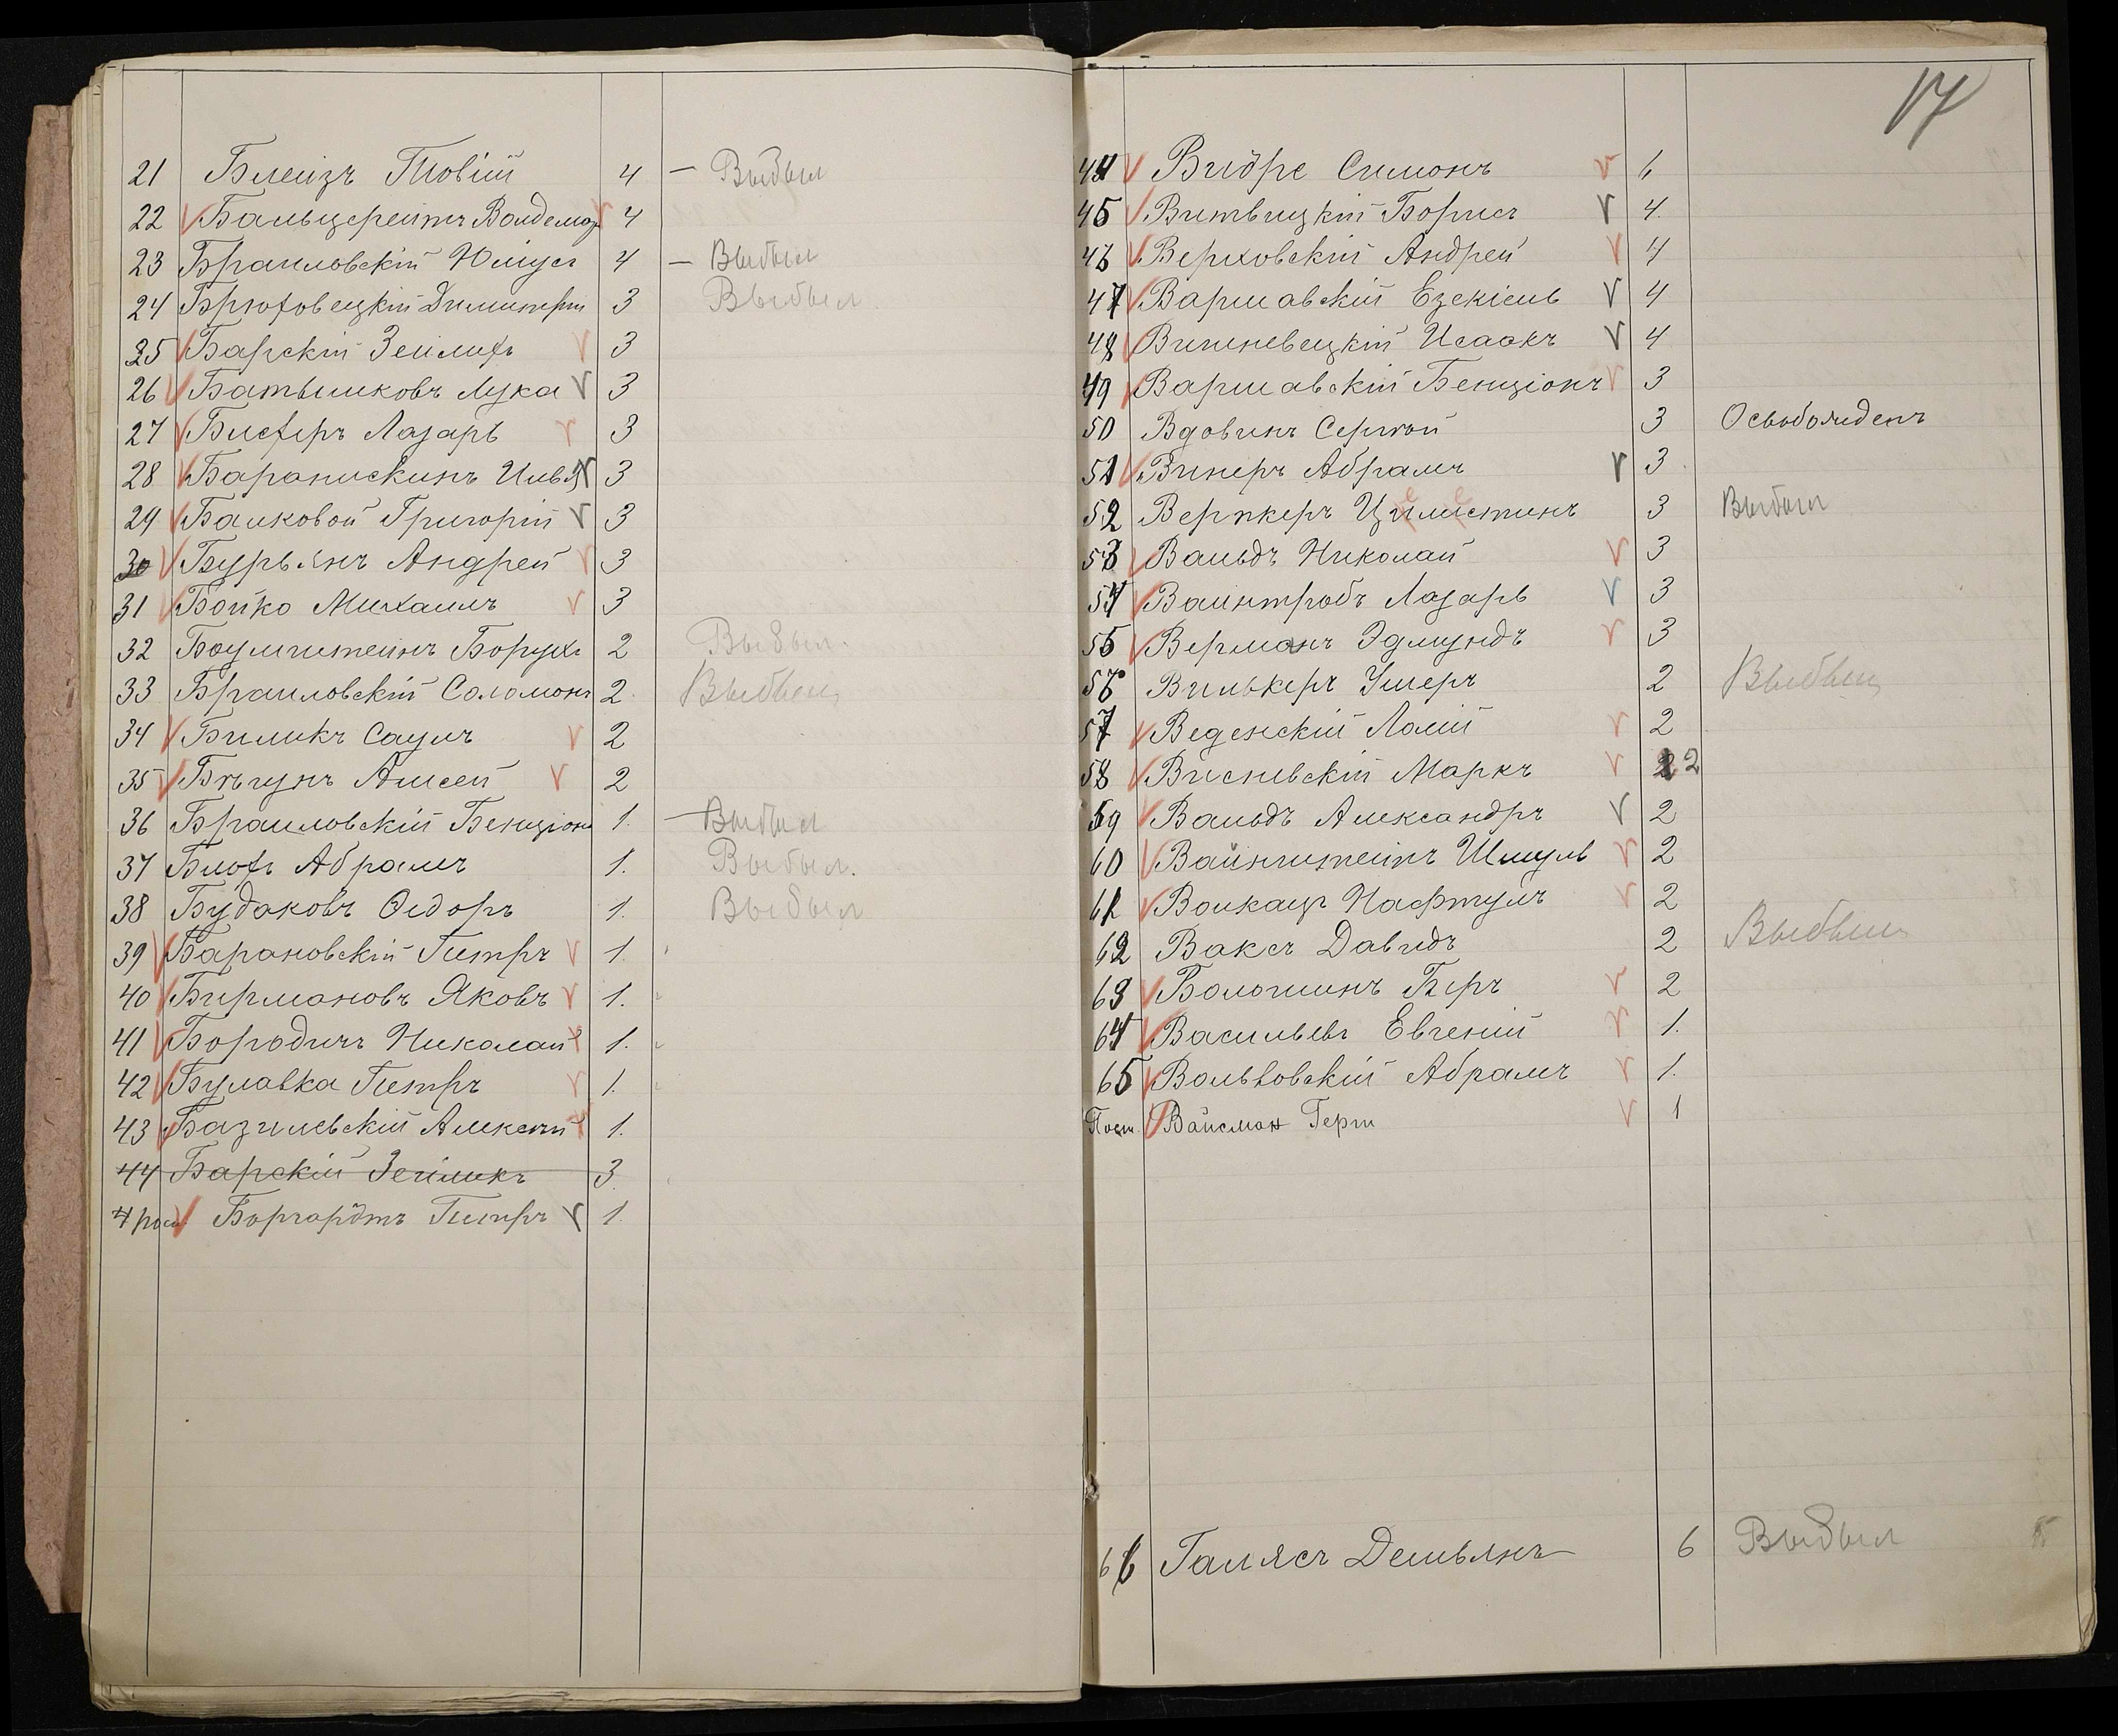 21 Блейзъ Товій 4 — Выбыл
22 Бальцерейтъ Вольдемар 4
23 Браиловскій Юлиус 4 — Выбыл
24 Брюховецкій Димитрій 3 Выбыл
25 Барскій Зейлихъ 3
26 Батышковъ Лука 3
27 Бисферъ Лазарь 3
28 3
29 Байковой Григорій 3
30 Бурьянъ Андрей 3
31 Бойко Михаилъ 3
32 Боумштейнъ Борухъ 2 Выбыл.
33 Браиловскій Соломонъ 2 Выбывш
34 Биликъ Саулъ 2
35 Бѣгунъ 2
36 Браиловскій Бенціонъ 1. — Выбыл
37 Блохъ Абрамъ 1. Выбыл.
38 Будаковъ Ѳедоръ 1. Выбыл
39 Барановскій Петръ 1.
40 Бирмановъ Яковъ 1.
41 Бородичъ Николай 1.
42 Булавка Петръ 1.
43 Базилевскій Алексѣй 1.
44 Барскій Зейликъ 3
Боргардтъ Петръ 1.
17
44 Видре Симонъ 6
45 Витвицкій Борисъ 4.
46 Верховскій Андрей 4
47 Варшавскій Езекіель 4
48 Вишневецкій Исаакъ 4
49 Варшавскій Бенціонъ 3
50 Вдовинъ Сергѣй 3 Освобожденъ
51 Винеръ Абрамъ 3
52 Вернкеръ Целестинъ 3 Выбыл
53 Вальдъ Николай 3
54 Вайнтробъ Лазарь 3
55 Верманъ Эдмундъ 3
56 Вилькеръ Ушеръ 2 Выбывш
57 Веденскій 2
58 Висневскій Маркъ 2
59 Вальдъ Александръ 2
60 Вайнштейнъ Шмуль 2
61 Волкацъ Нафтулъ 2
62 Ваксъ Давидъ 2 Выбывш
63 Волошинъ Беръ 2
64 Васильевъ Евгеній 1.
65 Вольховскій Абрамъ 1.
Вайсман Герш 1
66 Галясъ Демьянъ 6 Выбыл